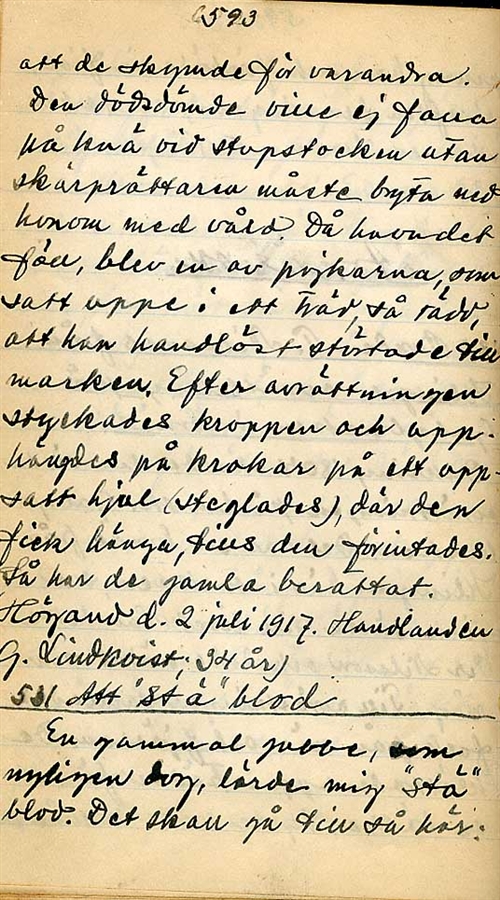 593
att de skymde för varandra.
Den dödsdömde ville ej falla
på knä vid stupstocken utan
skarprättaren måste bryta ned
honom med våld. Då huvudet
föll, blev en av pojkarna, som
satt uppe i ett träd, så rädd,
att han handlöst störtade till
marken. Efter avrättningen
styckades kroppen och upp-
hängdes på krokar på ett upp-
satt hjul (steglades), där den
fick hänga, tills den förintades.
Så har de gamla berättat.
d. 2 juli 1917. Handlanden
G. Lindkvist, 34 år)
531 Att "stä" blod
En gammal gubbe, som
nyligen dog, lärde mig "stä"
blod. Det skall gå till så här: